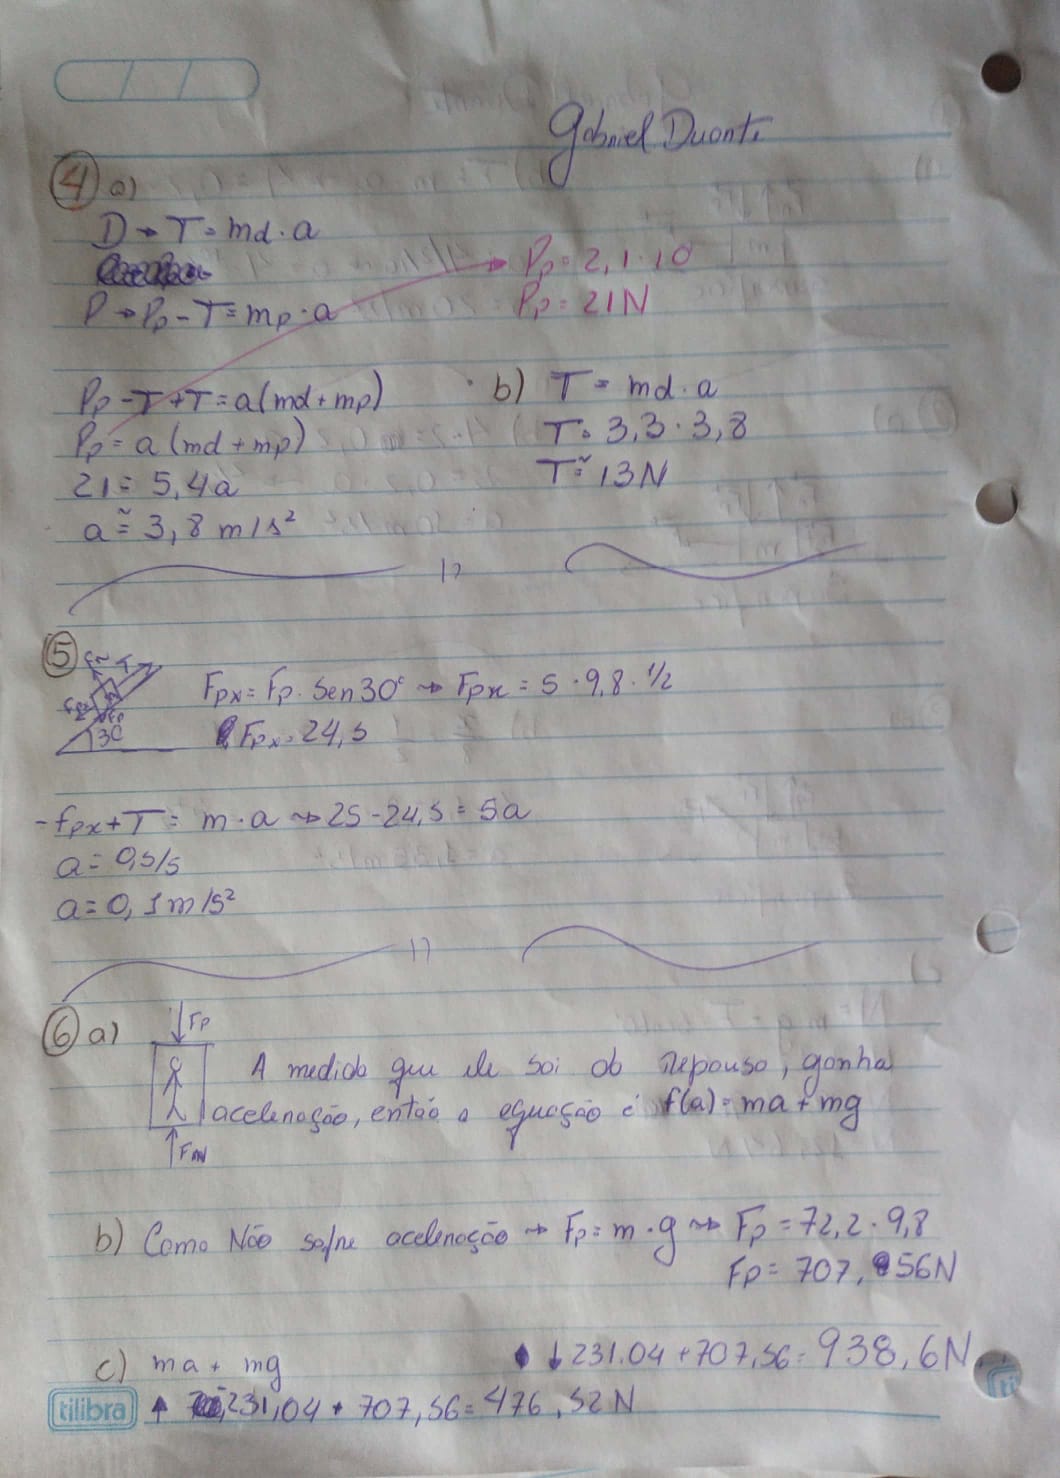 Gabriel Duarte
4 a)
D → T = md · a
P → Pp - T = mp · a
Pp = 2,1 · 10
Pp = 21N
Pp - T + T = a(md + mp)
Pp = a (md + mp)
21 = 5,4a
a ≅ 3,8 m/s²
b) T = md · a
T = 3,3 · 3,8
T ≅ 13N
5
T
30
Fpx = Fp · Sen30° → Fpx = 5 · 9,8 · 1/2
Fpx = 24,5
-Fpx + T = m · a → 25 - 24,5 = 5a
a = 0,5/5
a = 0,1 m/s²
6 a)
↓ Fp
A medida que ele sai do repouso, ganha
aceleração, então a equação é f(a) = ma + mg
↑ FN
b) Como Não sofre aceleração → Fp = m · g → Fp = 72,2 · 9,8
Fp = 707,56N
c) ma + mg
↓ 231.04 + 707,56 = 938,6N
↑ 231,04 + 707,56 = 476,52N
tilibra